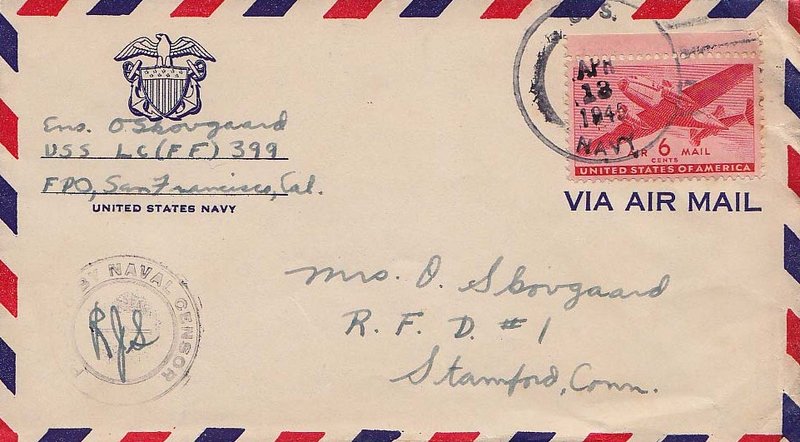 Ens. O Skovgaard
USS LC(FF) 399
FPO, San Francisco, Cal.
UNITED STATES NAVY
U.S.
APR
13
1945
NAVY
AIR 6 MAIL
CENTS
UNITED STATES OF AMERICA
VIA AIR MAIL
BY NAVAL CENSOR
RJS
Mrs. O. Skovgaard
R. F. D. # 1
Stamford, Conn.